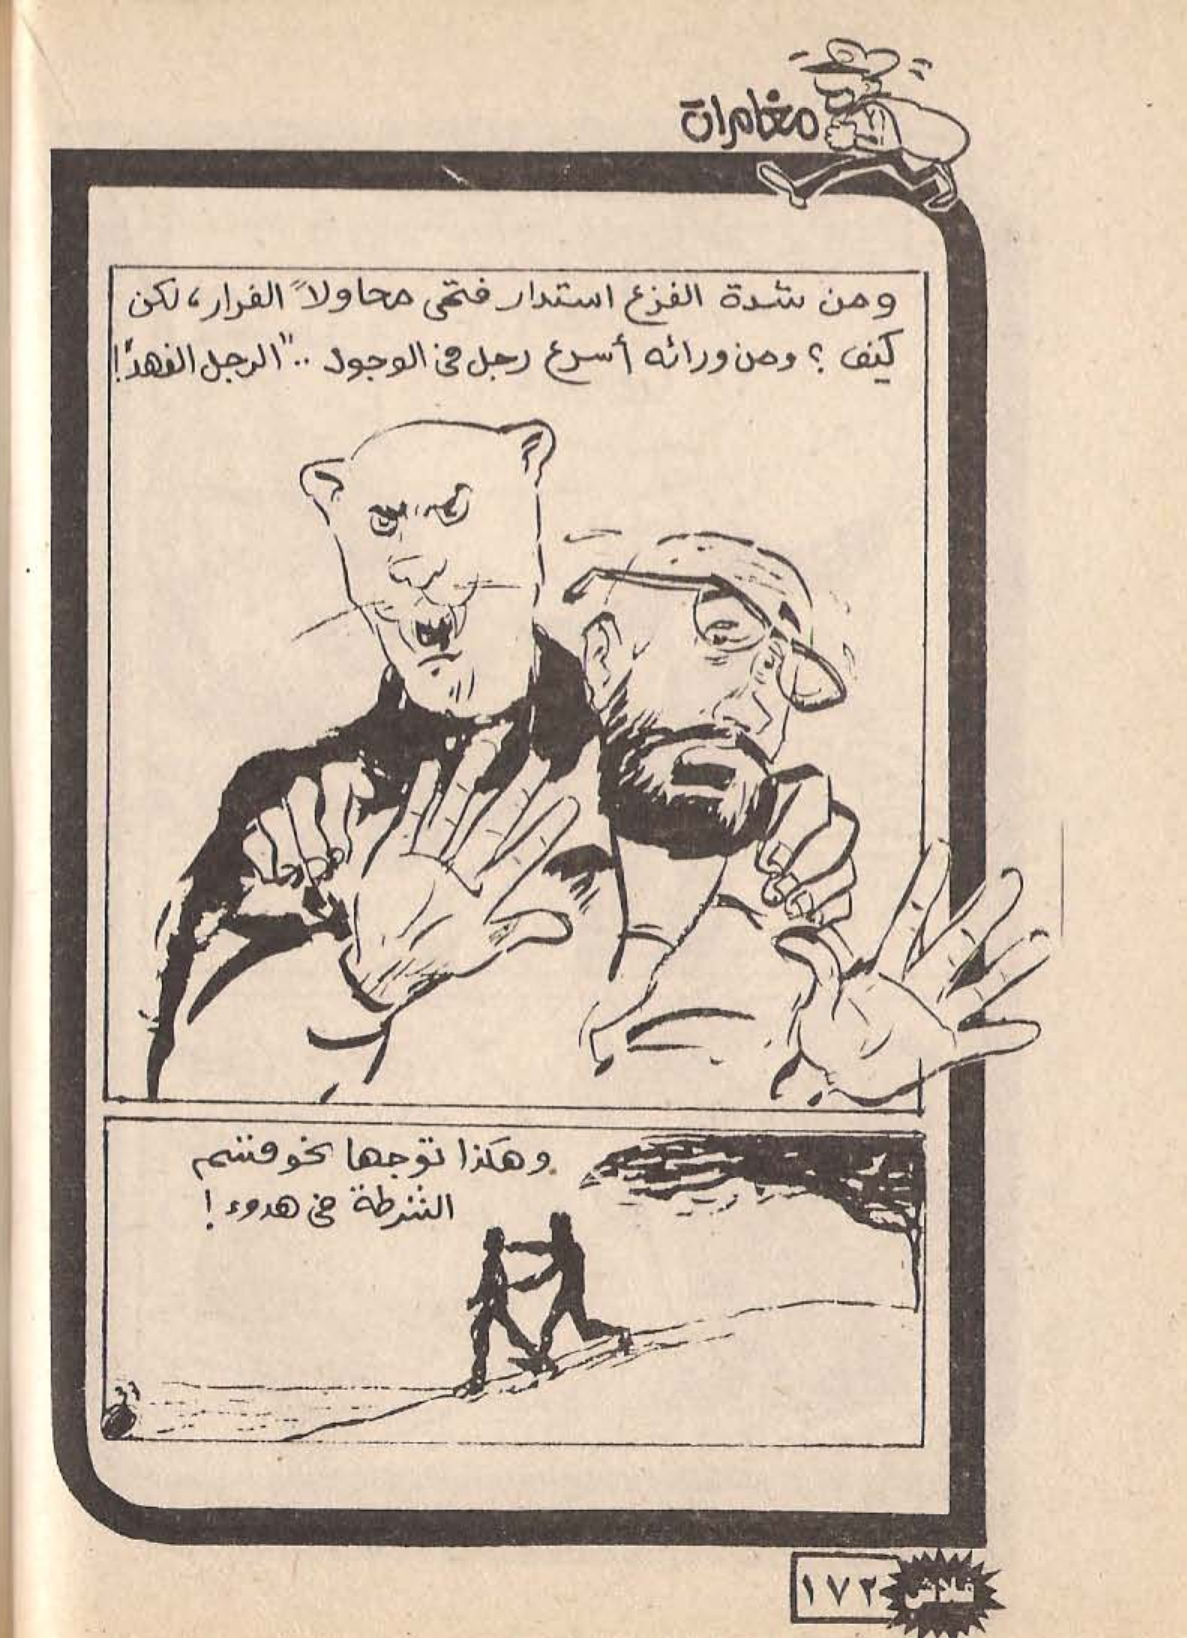 مغامرات
ومن شدة الفزع استدار فتحى محاولاً الفرار، لكن
كيف ؟ ومن ورائه أسرع رجل فى الوجود .. "الرجل الفهد"!
وهكذا توجها نحو قسم
الشرطة فى هدوء !
فلاش
١٧٢